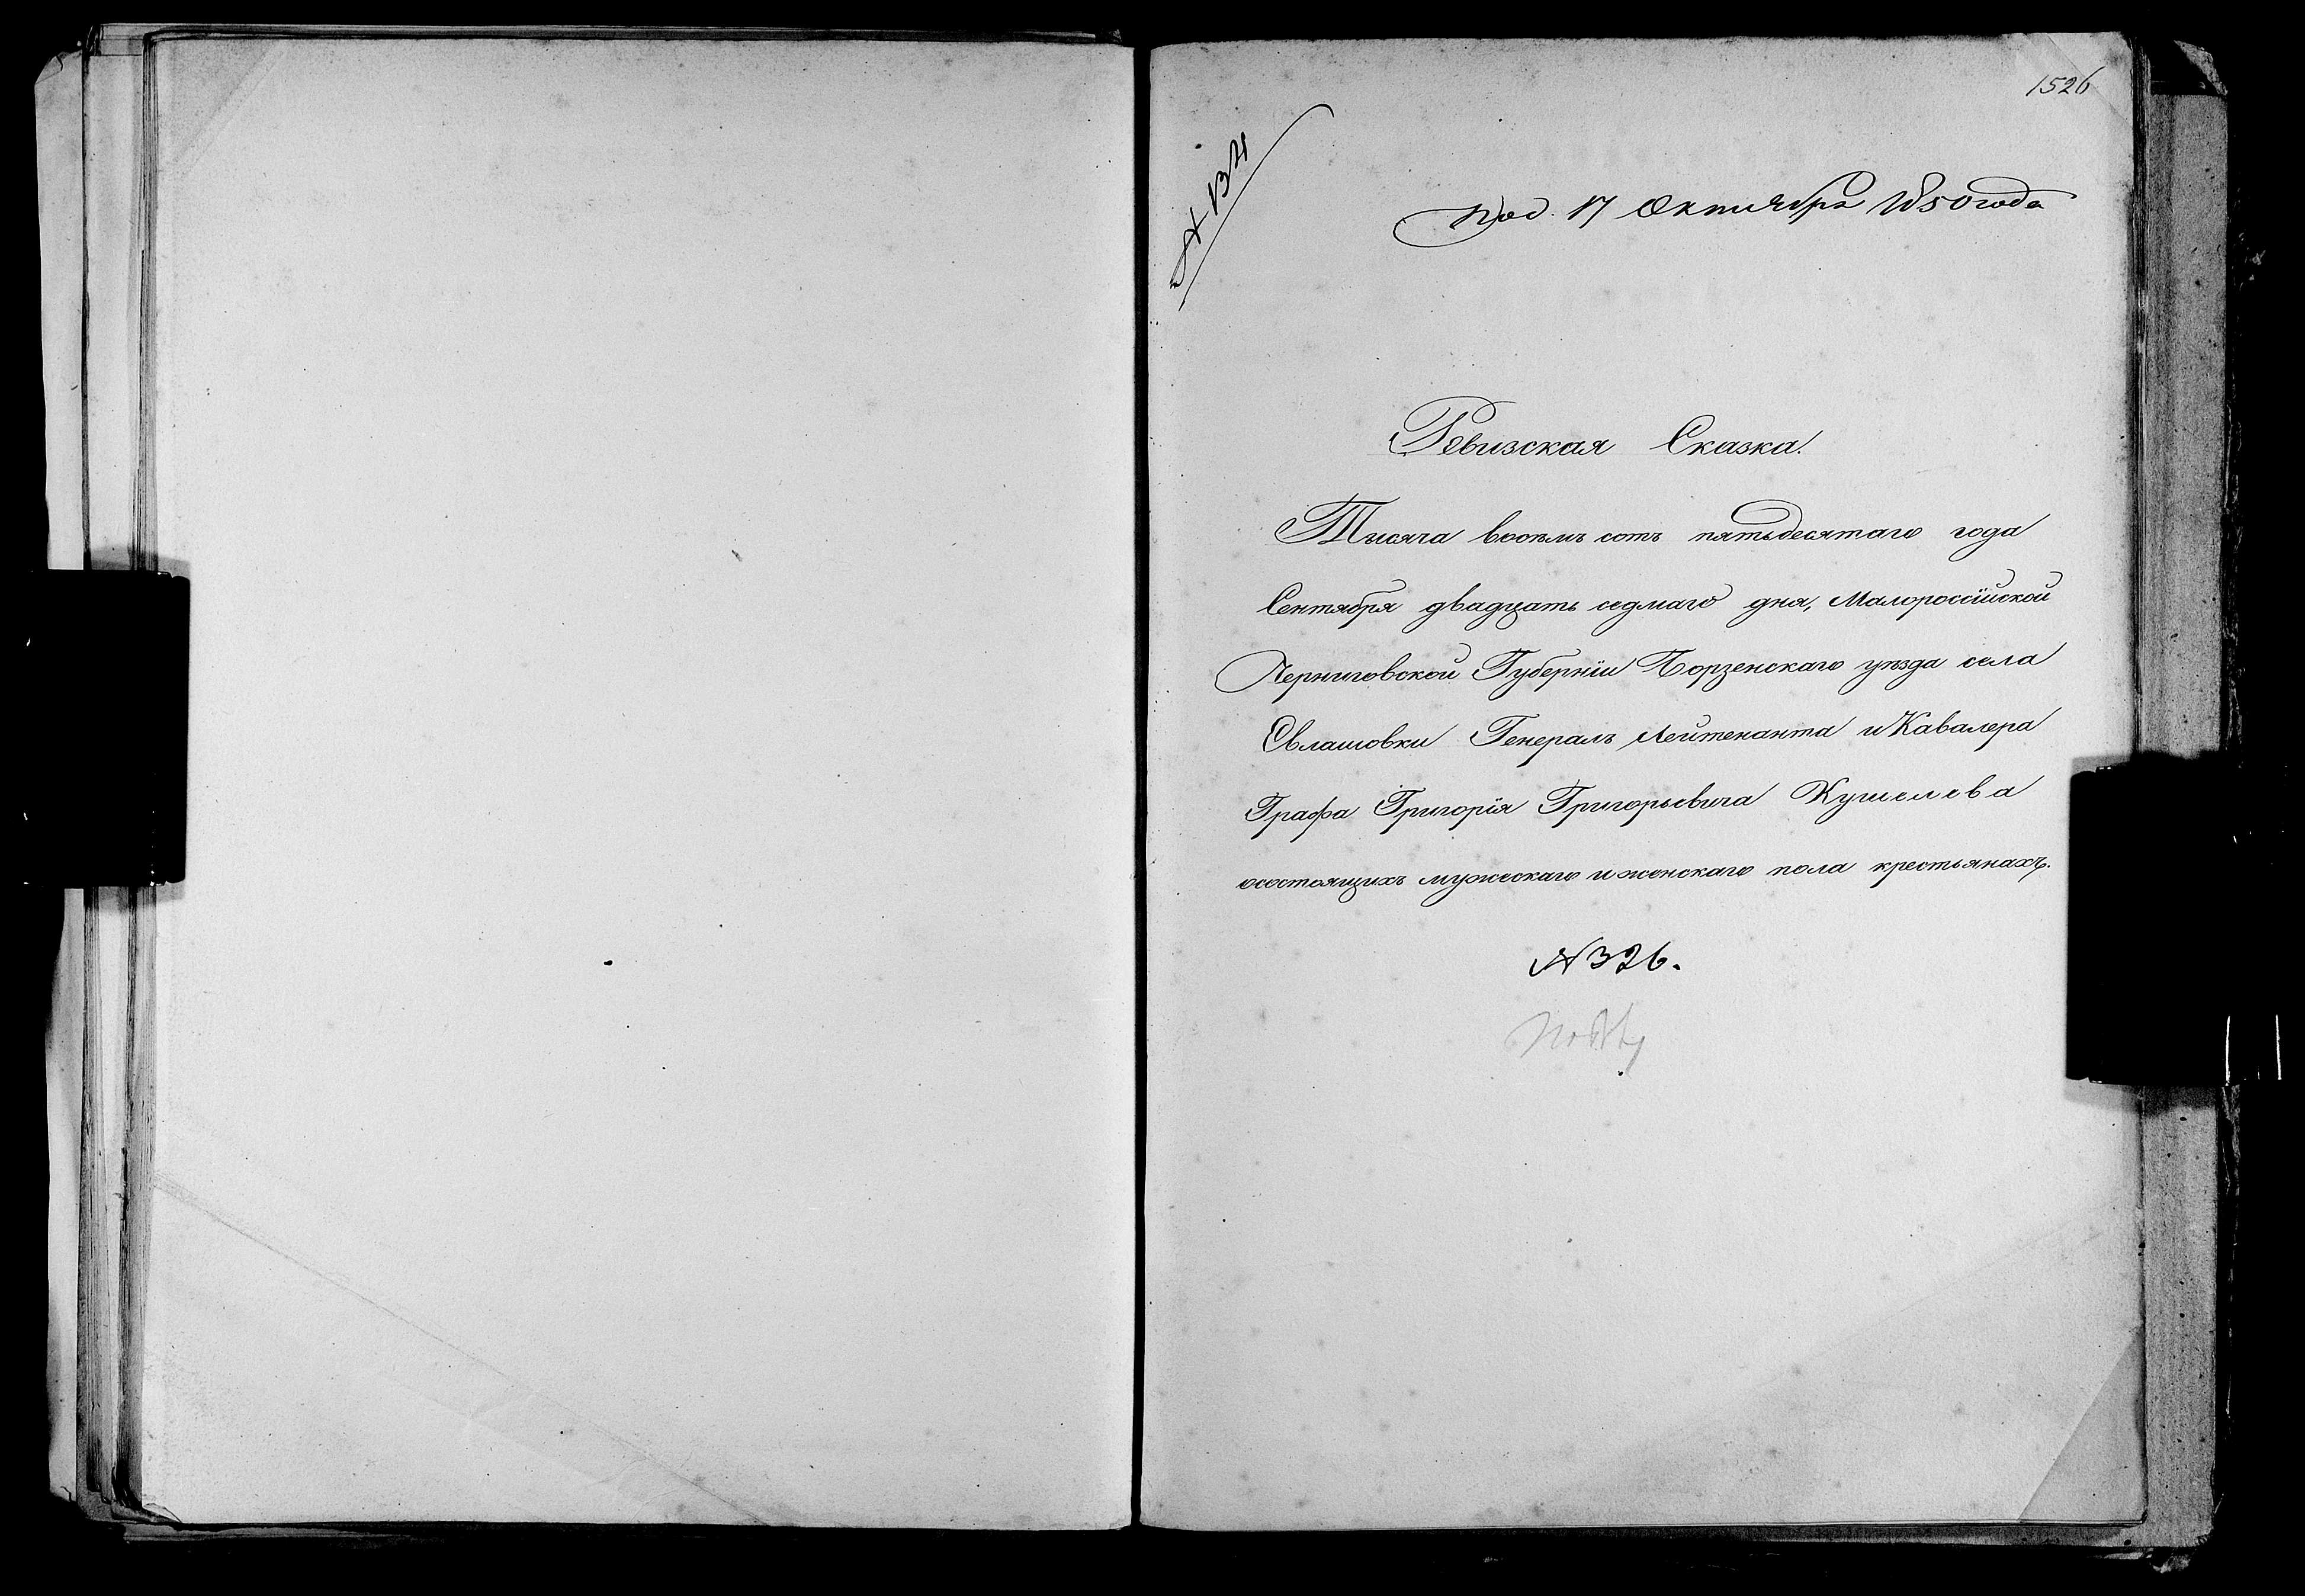 1526
№ 134
Под. 17 Октября 1850 года
Ревизская Сказка.
Тысяча восемъ сотъ пятьдесятаго года
Сентября двадцать седмаго дня, Малороссійской
Черниговской Губерніи Борзенскаго уѣзда села
Евлашовки Генералъ Лейтенанта и Кавалера
Графа Григорія Григорьевича Кушелева
осостоящихъ мужескаго и женскаго пола крестьянахъ.
№ 326.